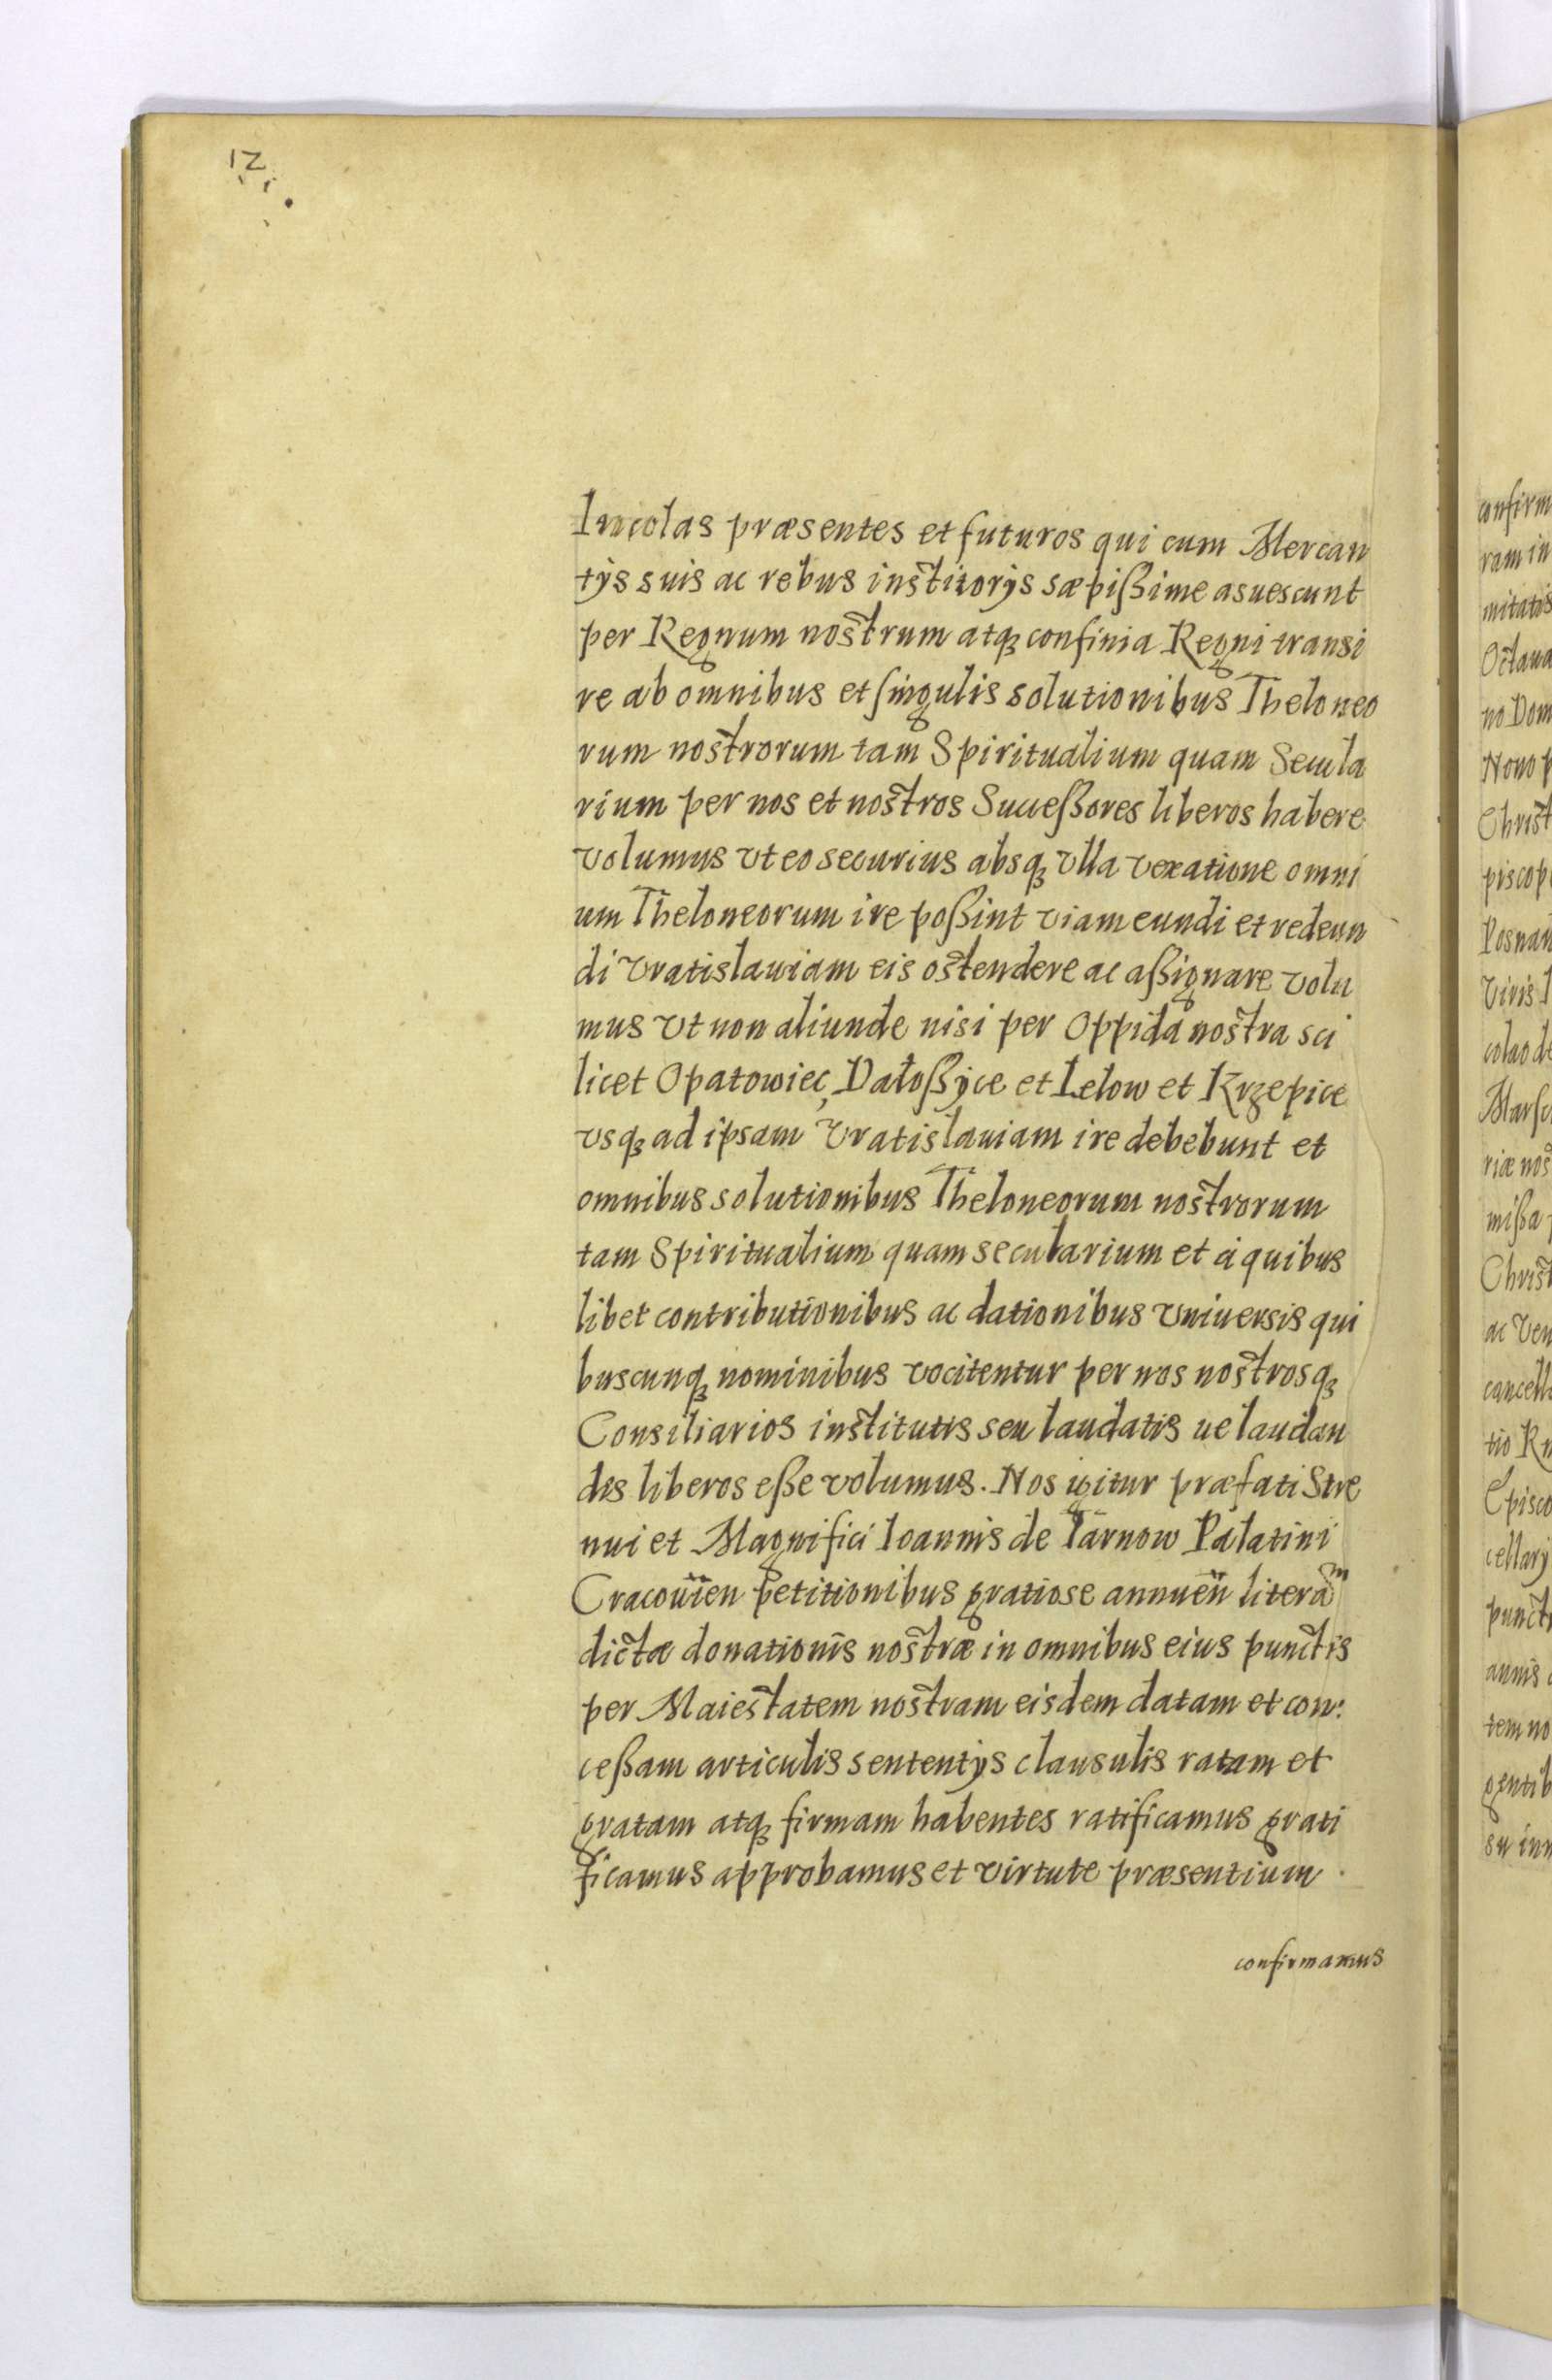 12
Incolas præsentes et futuros qui cum Mercan
tijs suis ac rebus institorijs sæpißime asuescunt
per Regnum nostrum atq confinia Regni transi
re ab omnibus et singulis solutionibus Theloneo
rum nostrorum tam Spiritualium quam Secula
rium per nos et nostros Succeßores liberos habere
volumus vt eo securius absq vlla vexatione omni
um Theloneorum ire poßint viam eundi et redeun
di Vratislauiam eis ostendere ac aßignare volu
mus vt non aliunde nisi per Oppida nostra sci
licet Opatowiec, Dałoßyce et Lelow et Krzepice
vsq ad ipsam Vratislauiam ire debebunt et
omnibus solutionibus Theloneorum nostrorum
tam Spiritualium quam secularium et à quibus
libet contributionibus ac dationibus vniuersis qui
buscunq nominibus vocitentur per nos nostrosq
Consiliarios institutis seu laudatis ue laudan
dis liberos eße volumus. Nos igitur præfati Stre
nui et Magnifici Ioannis de Tarnow Palatini
Cracouien petitionibus gratiose annuen literam
dictæ donationis nostræ in omnibus eius punctis
per Maiestatem nostram eisdem datam et con:
ceßam articulis sententijs clausulis ratam et
gratam atq firmam habentes ratificamus grati
ficamus approbamus et virtute præsentium
confirmamus
confirm
ram in
mitatis
Octaua
no Dom
Nono p
Christ
piscop
Posnan
Viris
colao de
Marsc
riæ nos
mißa
Christ
ac Ven
cancell
tio
Episco
cellarij
punct
annis
tem no
gentib
su inn